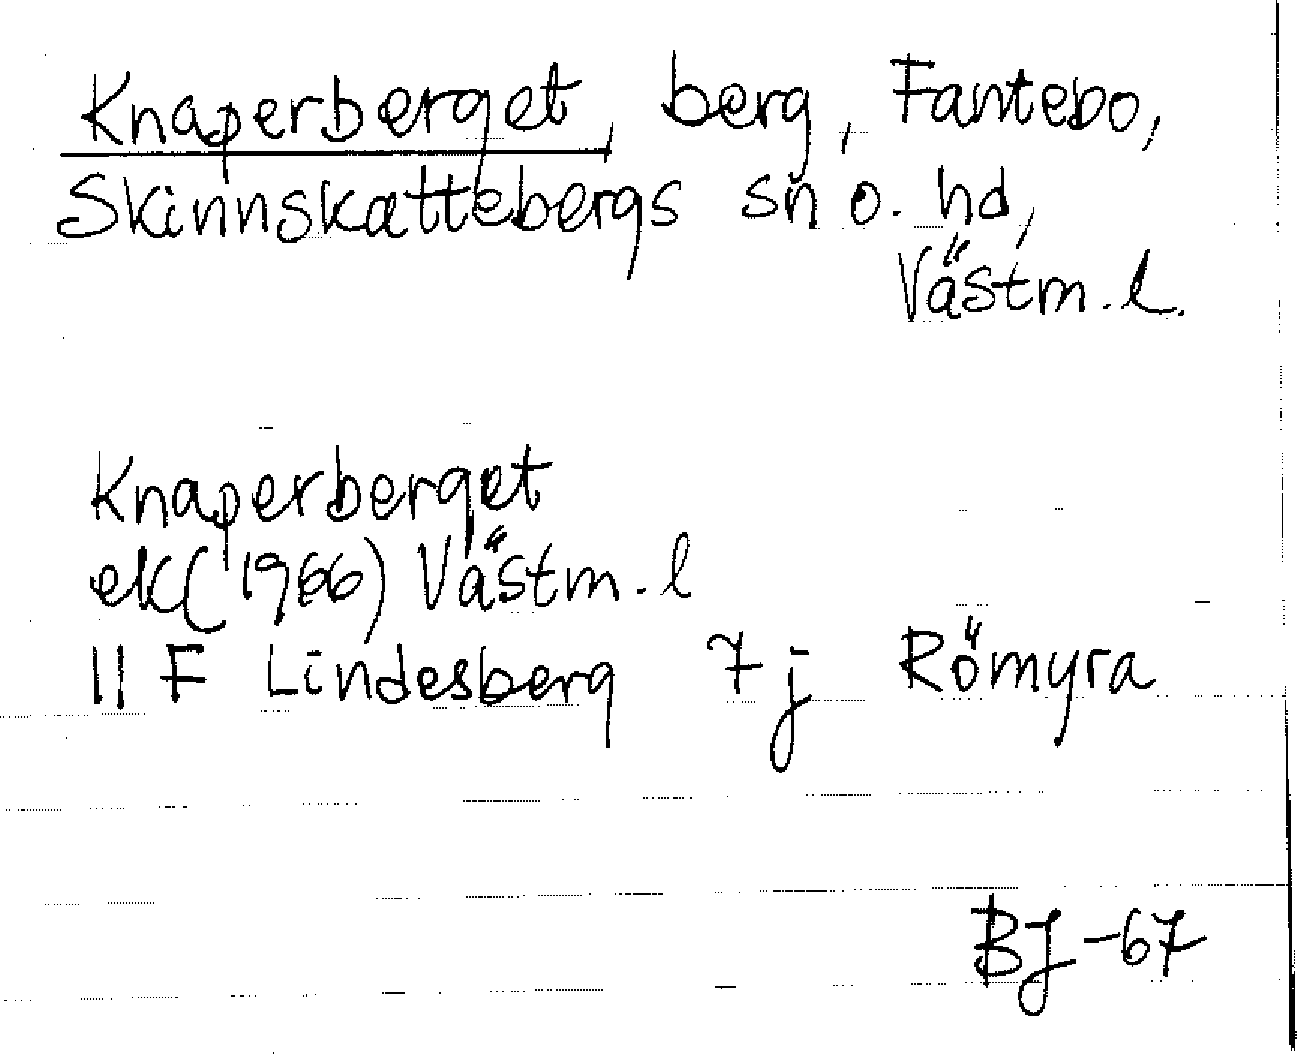 Knaperberget, berg, Fantebo,
Skinnskattebergs sn o. hd,
Västm. l.
Knaperberget
ek (1966) Västm. l
11 F Lindesberg 7 j Römyra
BJ -67